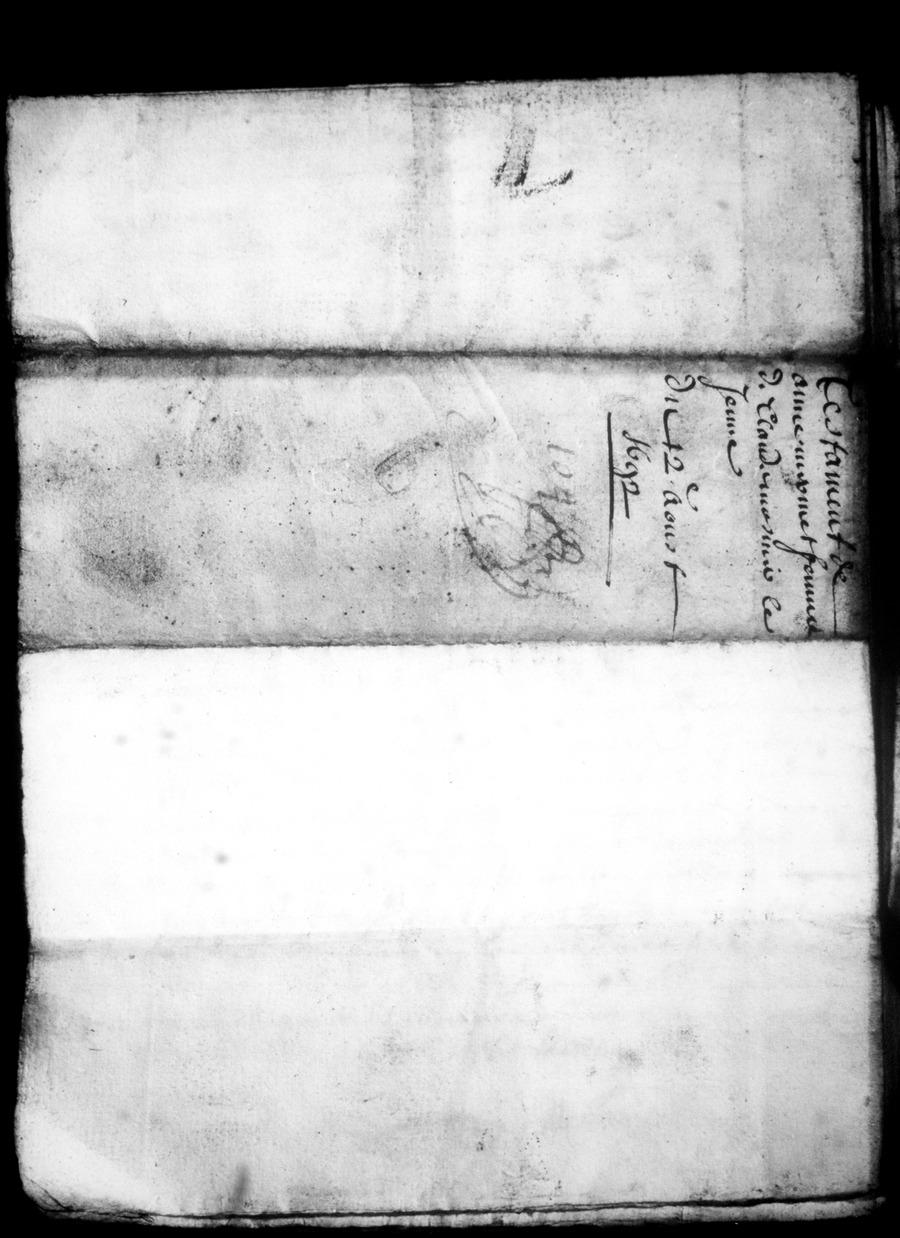 Testament de
anne mionet femme
d. Claude mosnio le
Jeune
Du 12e Aoust
1692